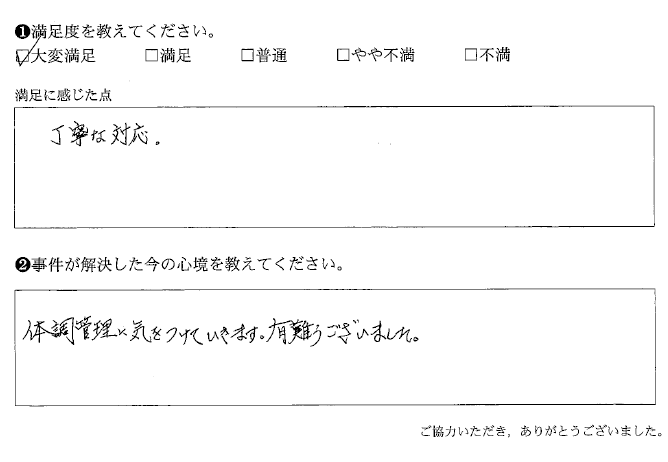 ❶満足度を教えてください。
☑大変満足 □満足 □普通 □やや不満 □不満
満足に感じた点
丁寧な対応。
❷事件が解決した今の心境を教えてください。
体調管理に気をつけていきます。有難うございました。
ご協力いただき，ありがとうございました。